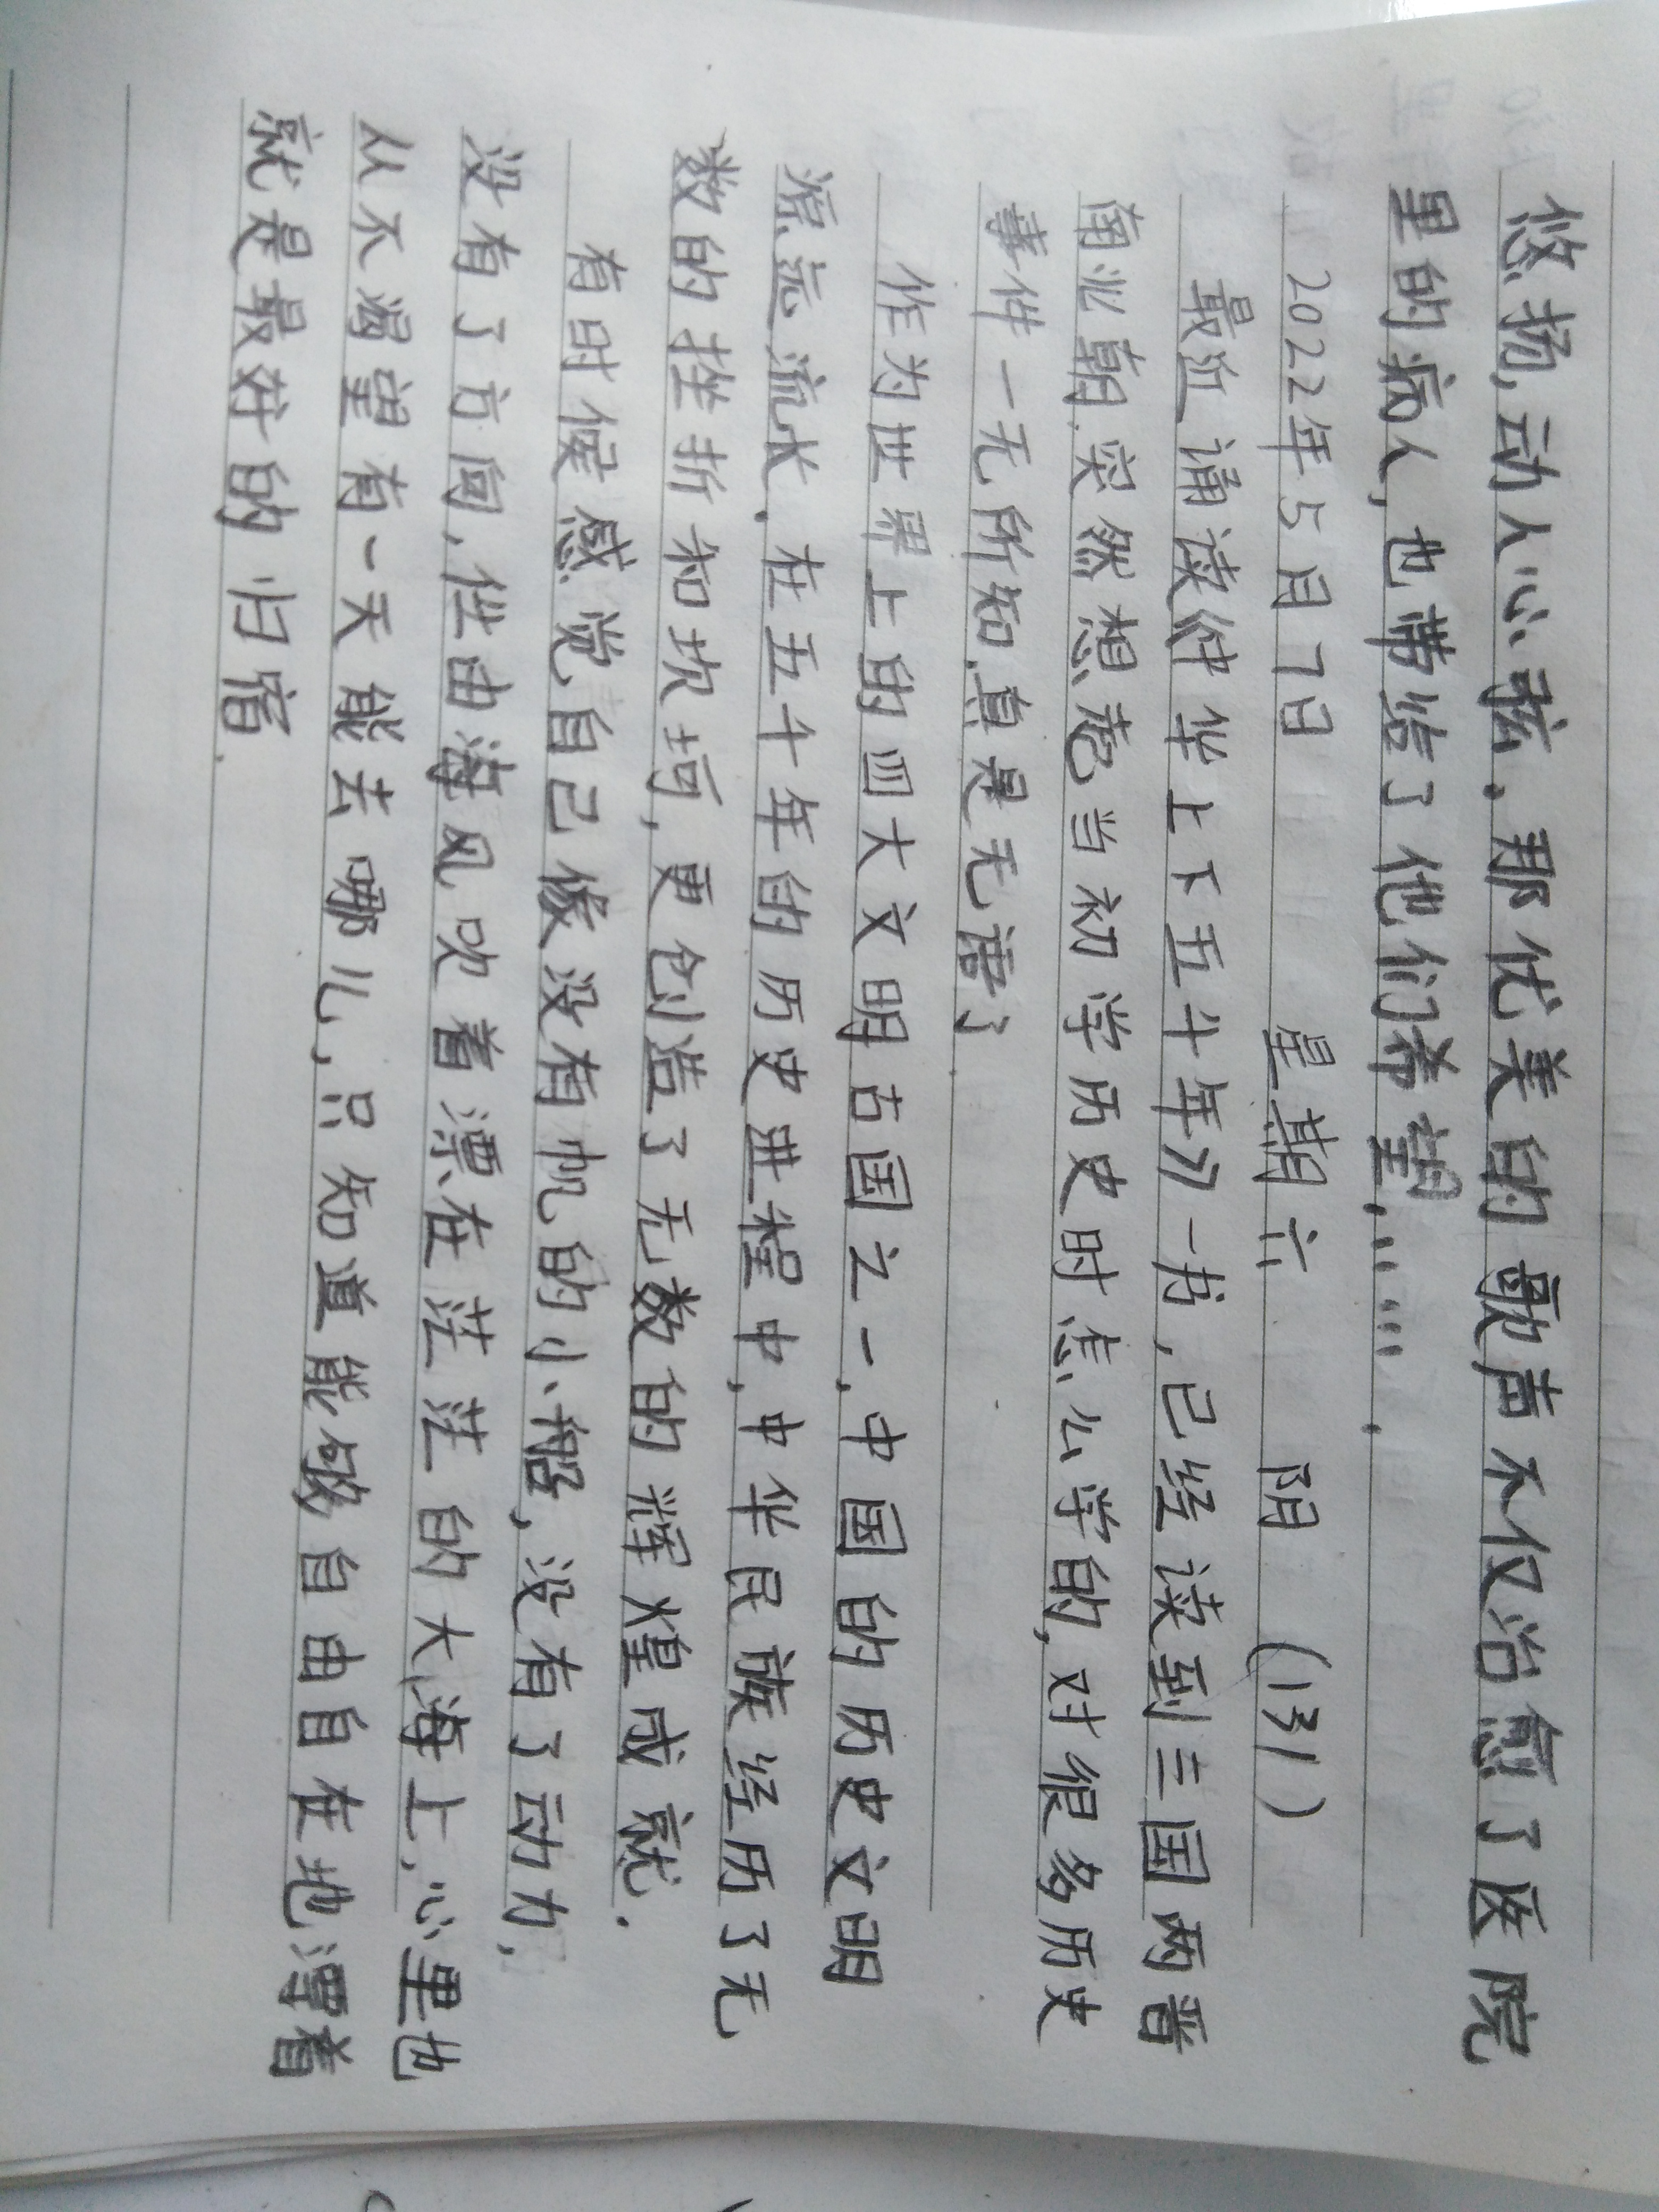 悠扬，动人心弦。那优美的歌声不仅治愈了医院
里的病人，也带给了他们希望……
2022年5月7日 星期六 阴 (131)
最近诵读《中华上下五千年》一书，已经读到三国两晋
南北朝.突然想起当初学历史时怎么学的，对很多历史
事件一无所知.真是无语了.
作为世界上的四大文明古国之一，中国的历史文明
源远流长.在五千年的历史进程中，中华民族经历了无
数的挫折和坎坷，更创造了无数的辉煌成就.
有时候感觉自己像没有帆的小船，没有了动力，
没有了方向，任由海风吹着漂在茫茫的大海上，心里也
从不渴望有一天能去哪儿，只知道能够自由自在地漂着
就是最好的归宿.